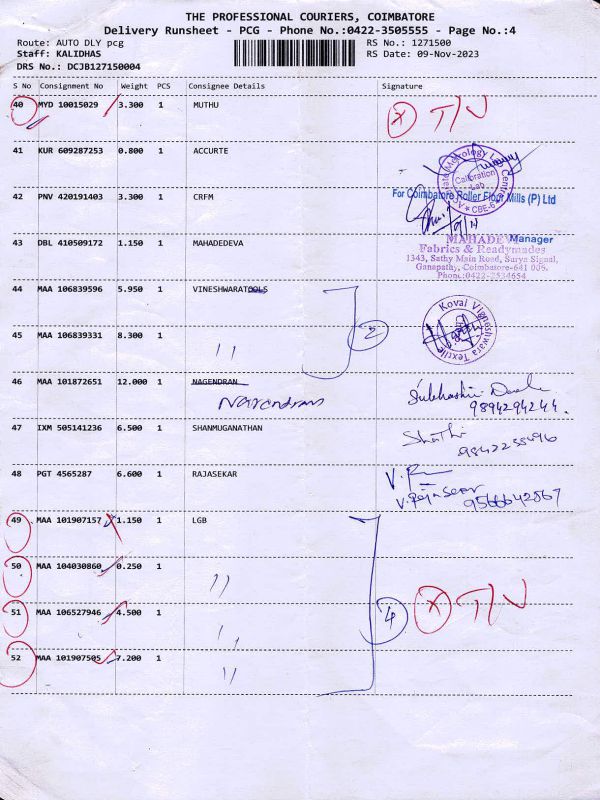 THE PROFESSIONAL COURIERS, COIMBATORE
Delivery Runsheet - PCG - Phone No.:0422-3505555 - Page No.:4
Route: AUTO DLY pcg RS No.: 1271500
Staff: KALIDHAS RS Date: 09-Nov-2023
DRS No.: DCJB127150004
S No Consignment No Weight PCS Consignee Details Signature
40 MYD 10015029 3.300 1 MUTHU
41 KUR 609287253 0.800 1 ACCURTE
Calibration
Lab
CBE-6
42 PNV 420191403 3.300 1 CRFM
For Coimbatore Roller Flour Mills (P) Ltd
Manager
43 DBL 410509172 1.150 1 MAHADEDEVA
MAHADEV
Fabrics & Readymades
1343, Sathy Main Road, Surya Signal,
Ganapathy, Coimbatore-641 006.
Phone:0422-2534654
44 MAA 106839596 5.950 1 VINESHWARATOOLS
2
Kovai Vigneshwara Textile
45 MAA 106839331 8.300 1 ''
46 MAA 101872651 12.000 1 NAGENDRAN
Narendran
9894294244.
47 IXM 505141236 6.500 1 SHANMUGANATHAN
9842255496
48 PGT 4565287 6.600 1 RAJASEKAR
V. Rajasekar 9566642867
49 MAA 101907157 1.150 1 LGB
50 MAA 104030860 0.250 1 ''
51 MAA 106527946 4.500 1 ''
4
52 MAA 101907505 7.200 1 ''